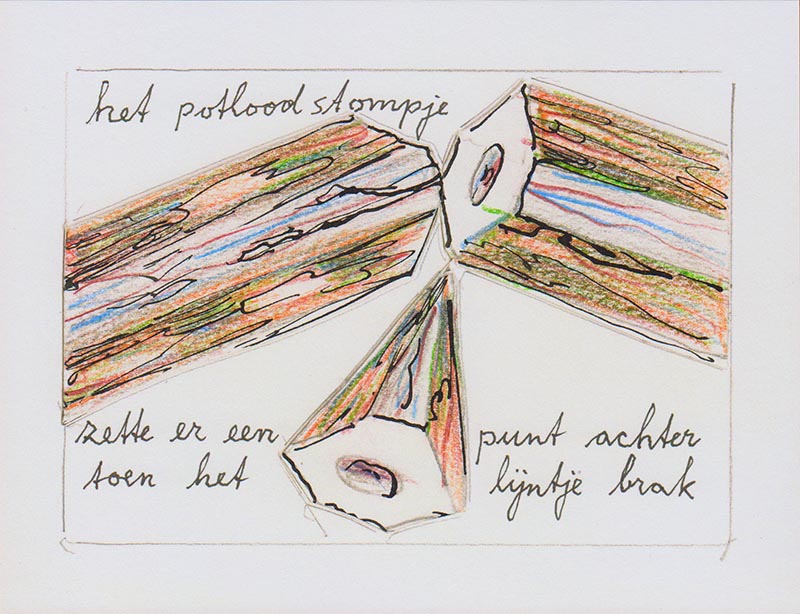 het potloodstompje
zette er een punt achter
toen het lijntje brak